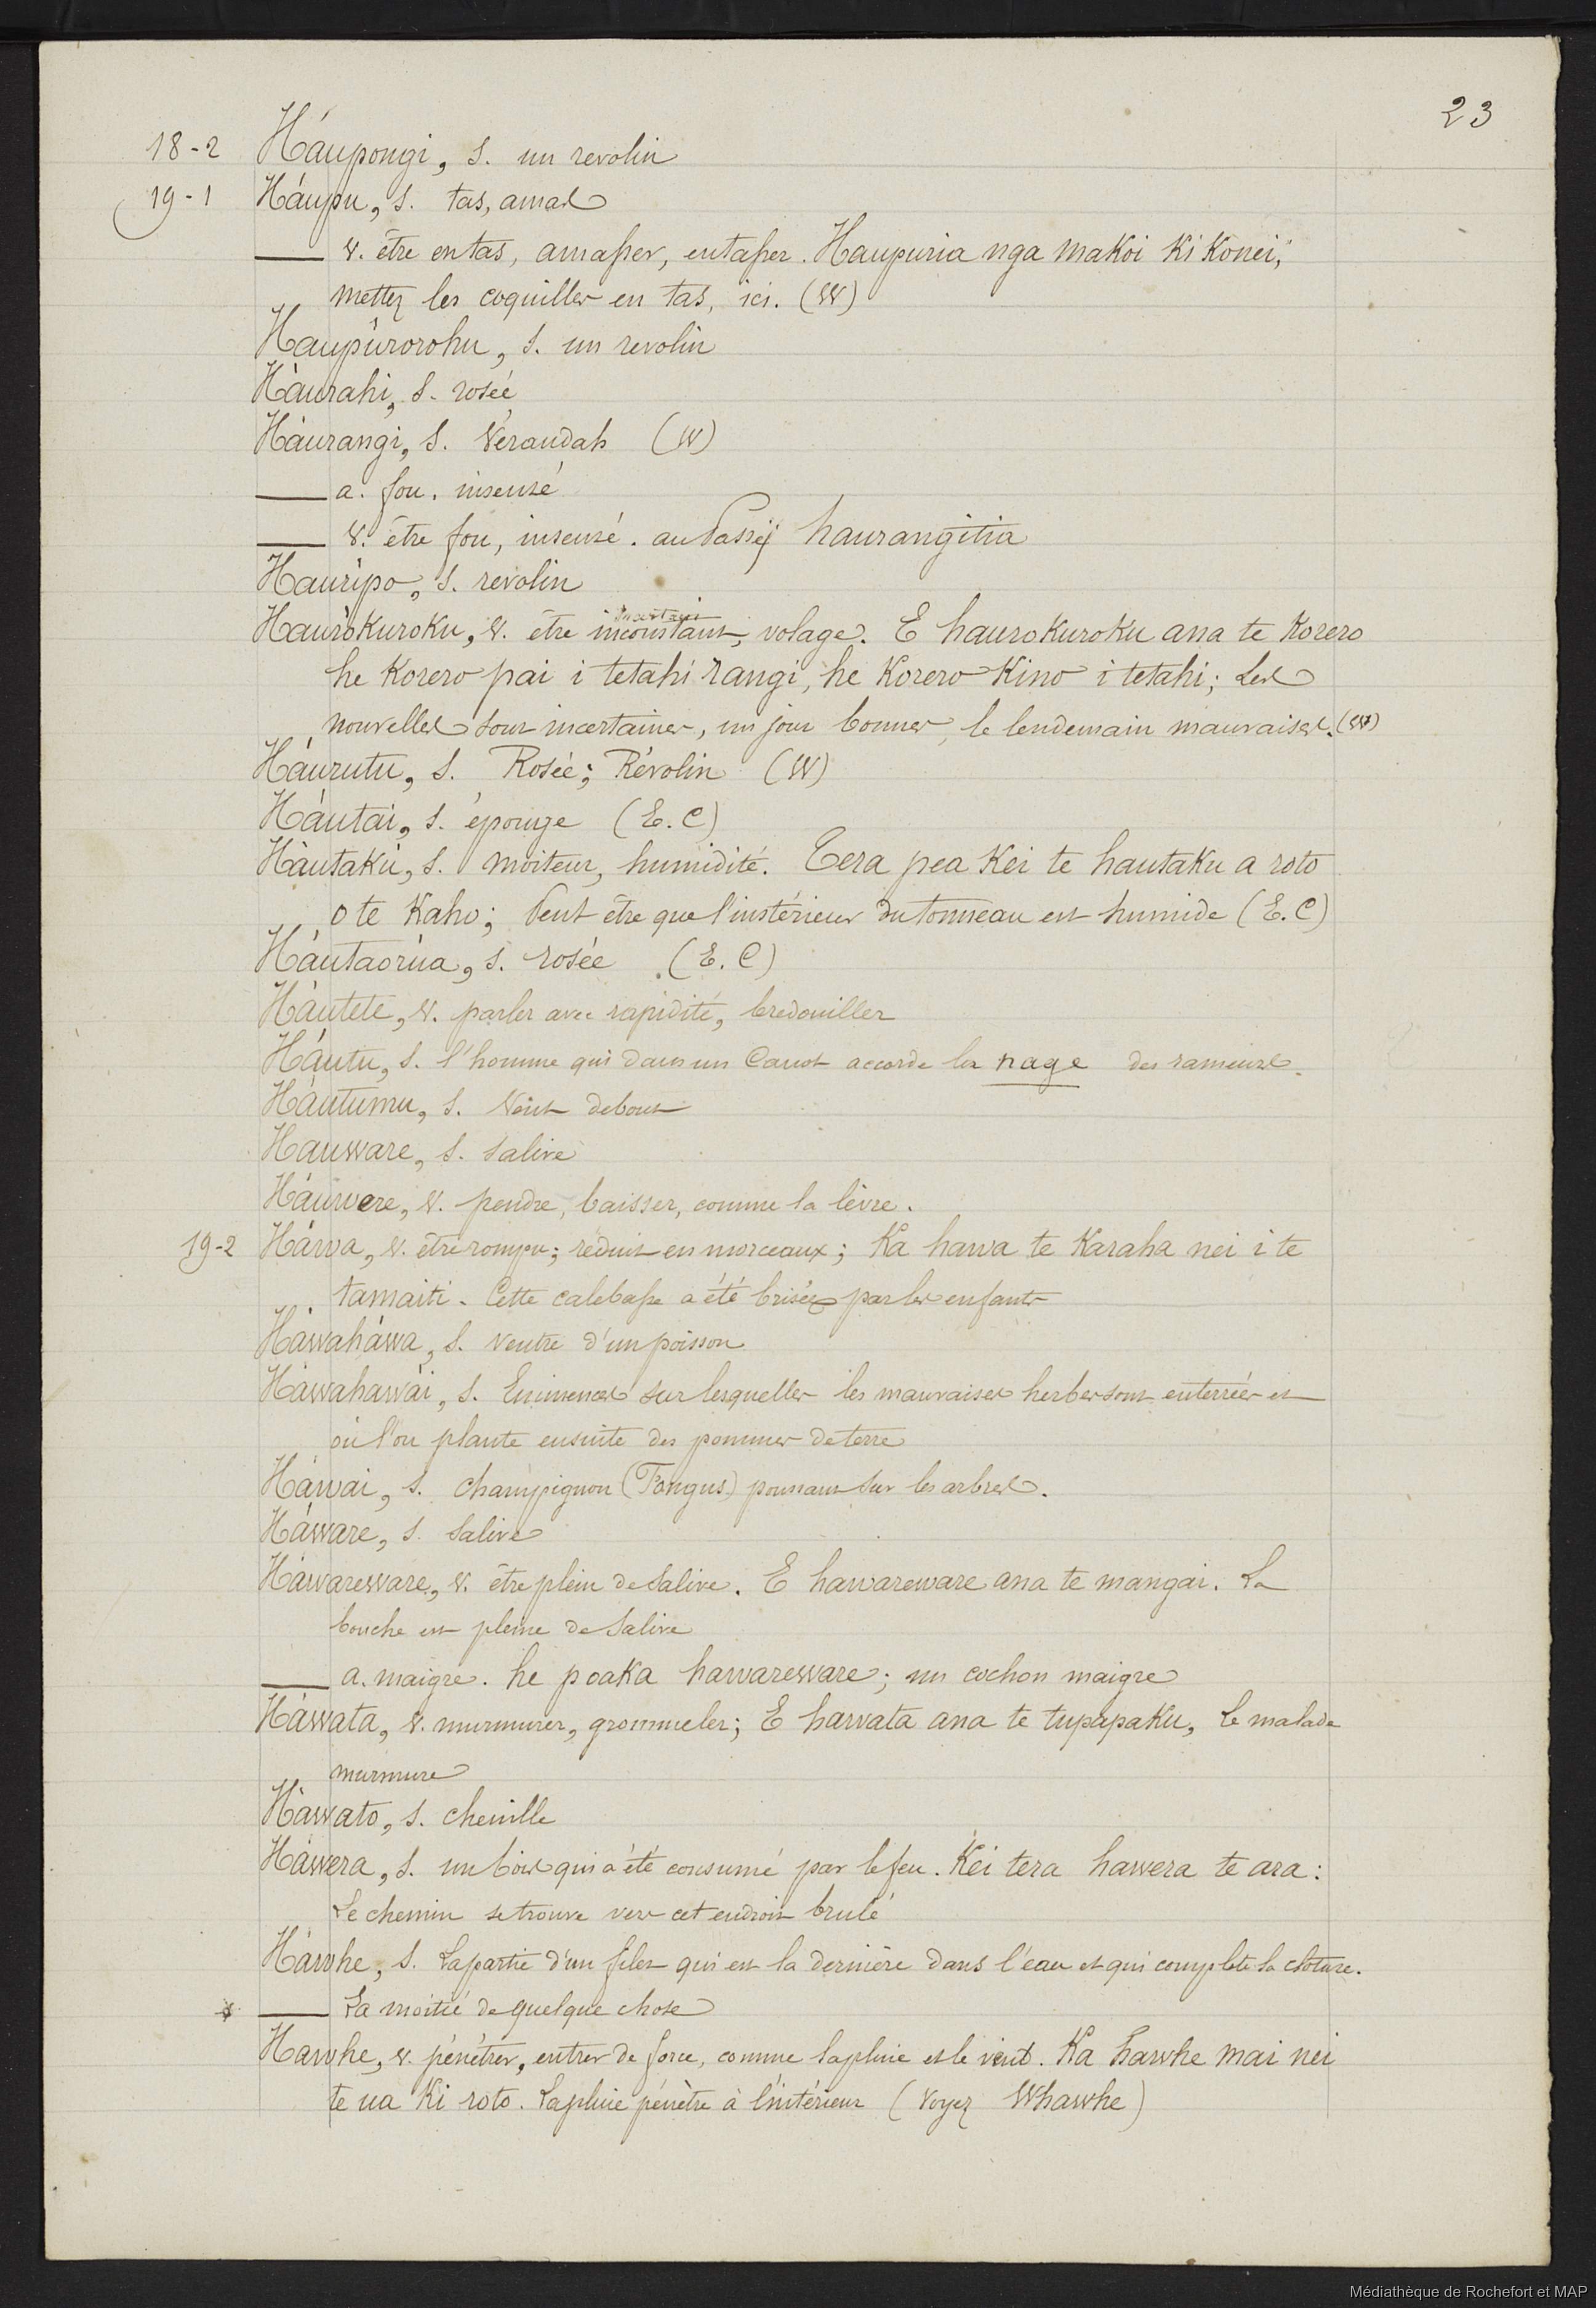 23
18-2 Háupongi, s. un revolin
19-1 Háupu, s. tas, amas
___ v. être en tas, amasser, entasser. Haupuria nga makoi ki konei,
mettez les coquilles en tas, ici. (W)
Haupúrorohu, s. un revolin
Háurahi, s. rosée
Háurangi, s. Vérandah (W)
___ a. fou, insensé
___ v. être fou, insensé. au Passif haurangitia
Haurípo, s. revolin
Haurokuroku, v. être inconstant, volage. E haurokuroku ana te korero
he korero pai i tetahi rangi, he korero kino i tetahi; Les
nouvelles sont incertaines, un jour bonnes, le lendemain mauvaises. (W)
Háurutu, s. Rosée; Révolin (W)
Háutai, s. éponge (E. C)
Háutakú, s. moiteur, humidité. Tera pea kei te hautaku a roto
o te kaho; Peut être que l'instérieur du tonneau est humide (E. C)
Háutaorúa, s. rosée. (E. C)
Háutete, v. parler avec rapidité, bredouiller
Háutu, s. l'homme qui dans un Canot accorde la nage des rameurs.
Háutumu, s. Vent debout
Hauware, s. salive
Háuwere, v. pendre, baisser, comme la lèvre.
19-2 Háwa, v. être rompu; réduit en morceaux; Ka hawa te karaha nei i te
tamaiti. Cette calebasse a été brisée par les enfants
Háwaháwa, s. ventre d'un poisson
Háwahawái, s. Eminences sur lesquelles les mauvaises herbes sont enterrées et
où l'on plante ensuite des pommes de terre
Háwai, s. champignon (Fongus) poussant sur les arbres.
Háware, s. salive
Háwareware, v. être plein de salive. E hawareware ana te mangai. La
bouche est pleine de salive
___ a. maigre. he poaka hawareware; un cochon maigre
Háwata, v. murmurer, grommeler; E hawata ana te tupapaku, Le malade
murmure
Háwato, s. chenille
Háwera, s. un bois qui a été consumé par le feu. Kei tera hawera te ara:
Le chemin se trouve vers cet endroit brulé
Háwhe, s. La partie d'un filet qui est la dernière dans l'eau et qui complete la cloture.
___ La moitié de quelque chose
Hawhe, v. pénétrer, entrer de force, comme la pluie et le vent. Ka hawhe mai nei
te ua ki roto. La pluie pénètre à l'intérieur (Voyez Whawhe)
Médiathèque de Rochefort et MAP